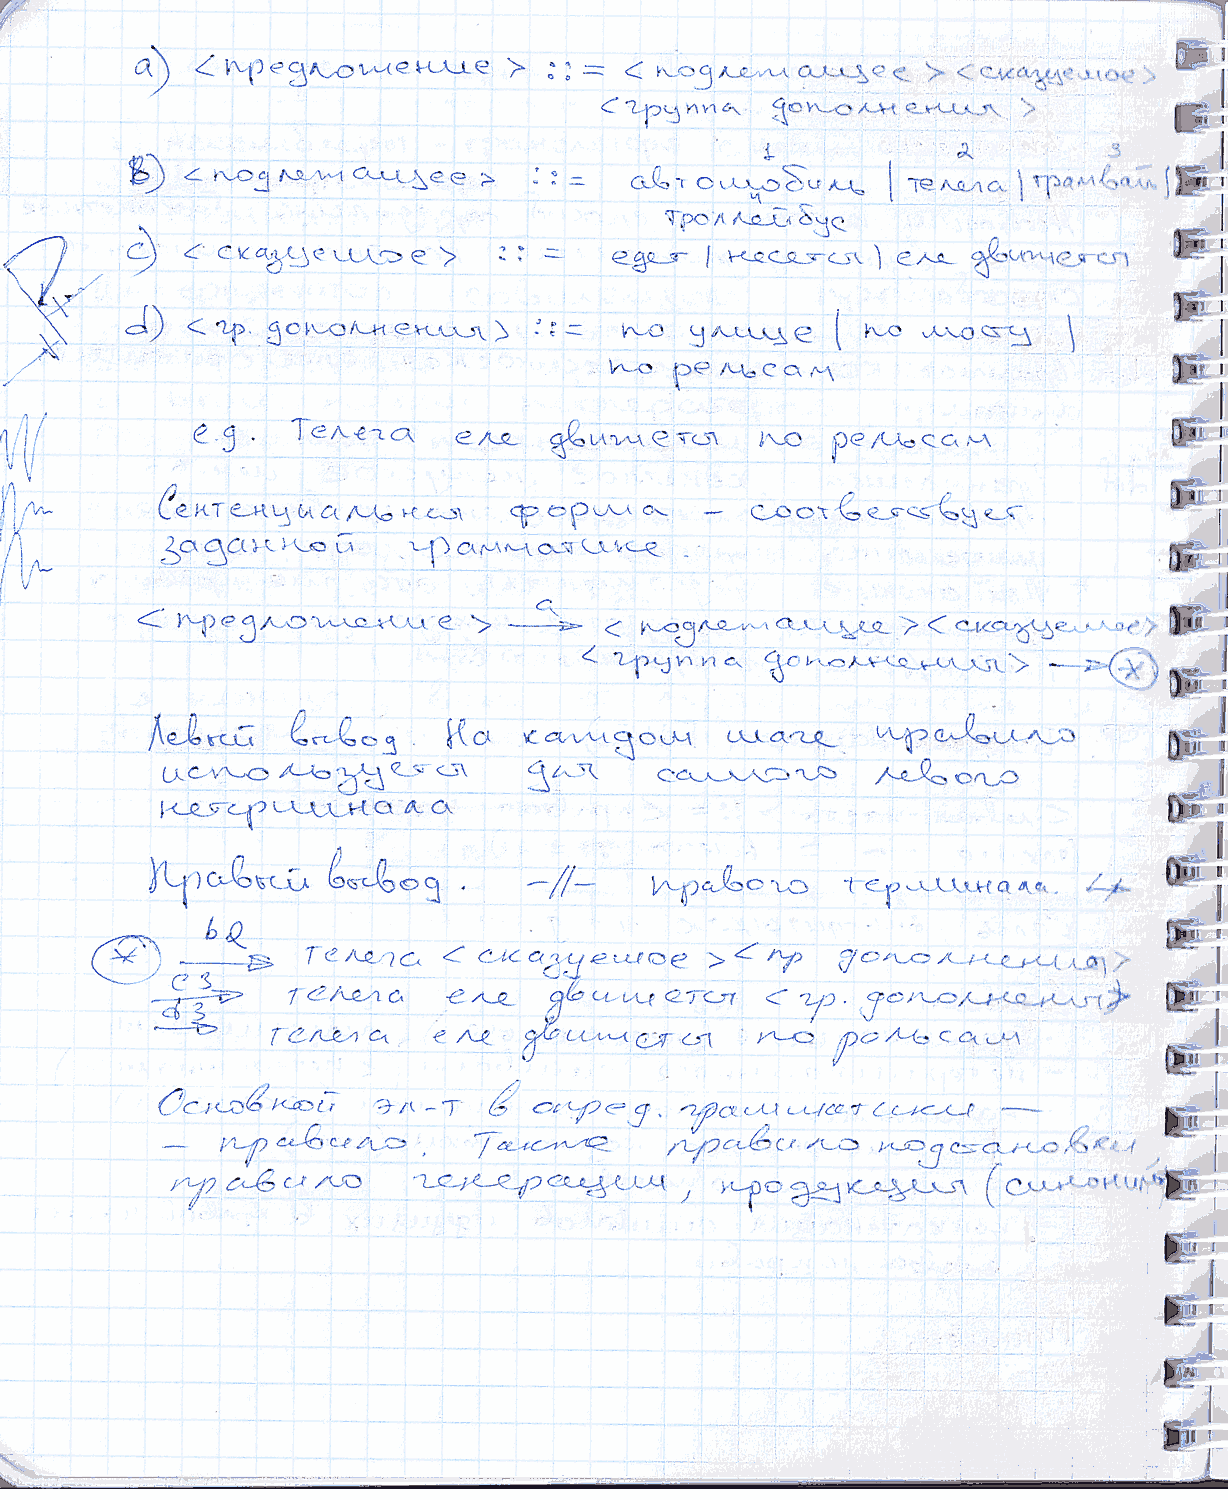 a) <предложение> ::= <подлежащее> <сказуемое>
<группа дополнения>
1 2 3
b) <подлежащее> ::= автомобиль | телега | трамвай |
4
троллейбус
c) <сказуемое> ::= едет | несется | еле движется
d) <гр. дополнения> ::= по улице | по мосту |
по рельсам
e.g. Телега еле движется по рельсам
Сентенциальная форма – соответствует
заданной грамматике.
a
<предложение> → <подлежащие> <сказуемое>
<группа дополнения> → *
Левый вывод. На каждом шаге правило
используется для самого левого
нетерминала
Правый вывод. –//– правого терминала.
b2
* → телега <сказуемое> <гр дополнения>
c3
→ телега еле движется <гр. дополнения>
d3
→ телега еле движется по рельсам
Основной эл-т в опред. грамматики —
– правило. Также правило подстановки,
правило генерации, продукция (синонимы)